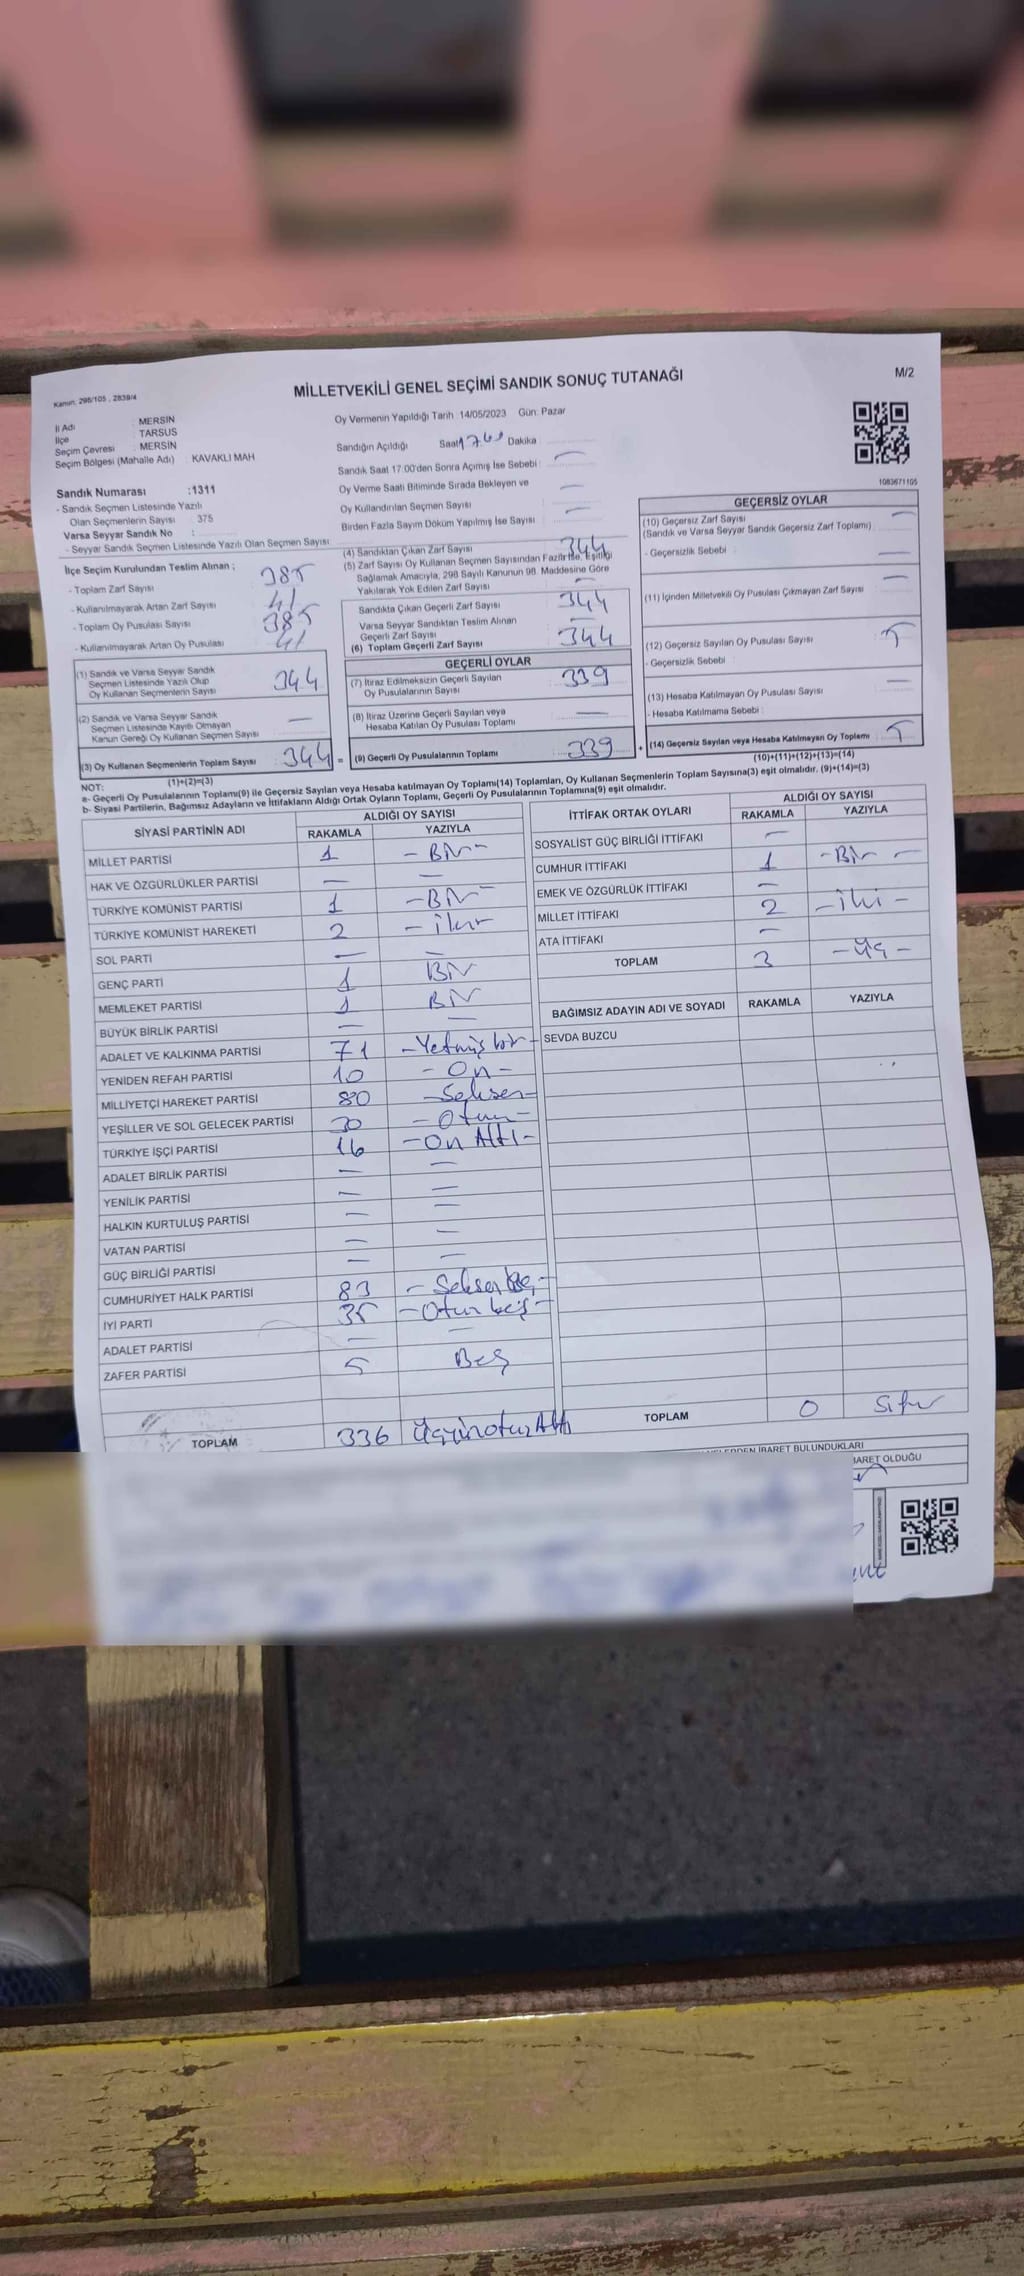 Kanun, 298/105 , 2839/4
MİLLETVEKİLİ GENEL SEÇİMİ SANDIK SONUÇ TUTANAĞI
M/2
İl Adı : MERSİN
İlçe : TARSUS
Seçim Çevresi : MERSİN
Seçim Bölgesi (Mahalle Adı) : KAVAKLI MAH
Sandık Numarası :1311
- Sandık Seçmen Listesinde Yazılı
Olan Seçmenlerin Sayısı : 375
Varsa Seyyar Sandık No :
- Seyyar Sandık Seçmen Listesinde Yazılı Olan Seçmen Sayısı:
Oy Vermenin Yapıldığı Tarih :14/05/2023 Gün: Pazar
Sandığın Açıldığı Saat: Dakika :
Sandık Saat 17:00'den Sonra Açılmış İse Sebebi :
Oy Verme Saati Bitiminde Sırada Bekleyen ve
Oy Kullandırılan Seçmen Sayısı :
Birden Fazla Sayım Döküm Yapılmış İse Sayısı :
1083671105
İlçe Seçim Kurulundan Teslim Alınan ;
- Toplam Zarf Sayısı : 385
- Kullanılmayarak Artan Zarf Sayısı : 41
- Toplam Oy Pusulası Sayısı : 385
- Kullanılmayarak Artan Oy Pusulası : 41
(1) Sandık ve Varsa Seyyar Sandık
Seçmen Listesinde Yazılı Olup
Oy Kullanan Seçmenlerin Sayısı : 344
(2) Sandık ve Varsa Seyyar Sandık
Seçmen Listesinde Kayıtlı Olmayan
Kanun Gereği Oy Kullanan Seçmen Sayısı : —
(3) Oy Kullanan Seçmenlerin Toplam Sayısı : 344
(1)+(2)=(3)
(4) Sandıktan Çıkan Zarf Sayısı : 344
(5) Zarf Sayısı Oy Kullanan Seçmen Sayısından Fazla İse, Eşitliği
Sağlamak Amacıyla, 298 Sayılı Kanunun 98. Maddesine Göre
Yakılarak Yok Edilen Zarf Sayısı : —
Sandıkta Çıkan Geçerli Zarf Sayısı : 344
Varsa Seyyar Sandıktan Teslim Alınan
Geçerli Zarf Sayısı : —
(6) Toplam Geçerli Zarf Sayısı : 344
GEÇERLİ OYLAR
(7) İtiraz Edilmeksizin Geçerli Sayılan
Oy Pusulalarının Sayısı : 339
(8) İtiraz Üzerine Geçerli Sayılan veya
Hesaba Katılan Oy Pusulası Toplamı : —
= (9) Geçerli Oy Pusulalarının Toplamı : 339
GEÇERSİZ OYLAR
(10) Geçersiz Zarf Sayısı : —
(Sandık ve Varsa Seyyar Sandık Geçersiz Zarf Toplamı)
- Geçersizlik Sebebi : —
(11) İçinden Milletvekili Oy Pusulası Çıkmayan Zarf Sayısı : —
(12) Geçersiz Sayılan Oy Pusulası Sayısı : 5
- Geçersizlik Sebebi :
(13) Hesaba Katılmayan Oy Pusulası Sayısı : —
- Hesaba Katılmama Sebebi :
+ (14) Geçersiz Sayılan veya Hesaba Katılmayan Oy Toplamı : 5
(10)+(11)+(12)+(13)=(14)
NOT:
a- Geçerli Oy Pusulalarının Toplamı(9) ile Geçersiz Sayılan veya Hesaba katılmayan Oy Toplamı(14) Toplamları, Oy Kullanan Seçmenlerin Toplam Sayısına(3) eşit olmalıdır. (9)+(14)=(3)
b- Siyasi Partilerin, Bağımsız Adayların ve İttifakların Aldığı Ortak Oyların Toplamı, Geçerli Oy Pusulalarının Toplamına(9) eşit olmalıdır.
SİYASİ PARTİNİN ADI
ALDIĞI OY SAYISI
RAKAMLA YAZIYLA
MİLLET PARTİSİ 1 - Bir -
HAK VE ÖZGÜRLÜKLER PARTİSİ — —
TÜRKİYE KOMÜNİST PARTİSİ 1 - Bir -
TÜRKİYE KOMÜNİST HAREKETİ 2 - iki -
SOL PARTİ — —
GENÇ PARTİ 1 Bir
MEMLEKET PARTİSİ 1 Bir
BÜYÜK BİRLİK PARTİSİ — —
ADALET VE KALKINMA PARTİSİ 71 - Yetmiş bir -
YENİDEN REFAH PARTİSİ 10 - On -
MİLLİYETÇİ HAREKET PARTİSİ 80 - Seksen -
YEŞİLLER VE SOL GELECEK PARTİSİ 30 - Otuz -
TÜRKİYE İŞÇİ PARTİSİ 16 - On Altı -
ADALET BİRLİK PARTİSİ — —
YENİLİK PARTİSİ — —
HALKIN KURTULUŞ PARTİSİ — —
VATAN PARTİSİ — —
GÜÇ BİRLİĞİ PARTİSİ — —
CUMHURİYET HALK PARTİSİ 83 - Seksen üç -
İYİ PARTİ 35 - Otuz beş -
ADALET PARTİSİ — —
ZAFER PARTİSİ 5 Beş
TOPLAM 336 Üçyüzotuz Altı
İTTİFAK ORTAK OYLARI
ALDIĞI OY SAYISI
RAKAMLA YAZIYLA
SOSYALİST GÜÇ BİRLİĞİ İTTİFAKI —
CUMHUR İTTİFAKI 1 - Bir -
EMEK VE ÖZGÜRLÜK İTTİFAKI —
MİLLET İTTİFAKI 2 - iki -
ATA İTTİFAKI —
TOPLAM 3 - Üç -
BAĞIMSIZ ADAYIN ADI VE SOYADI RAKAMLA YAZIYLA
SEVDA BUZCU
TOPLAM 0 Sıfır
İBARET BULUNDUKLARI
OLDUĞU